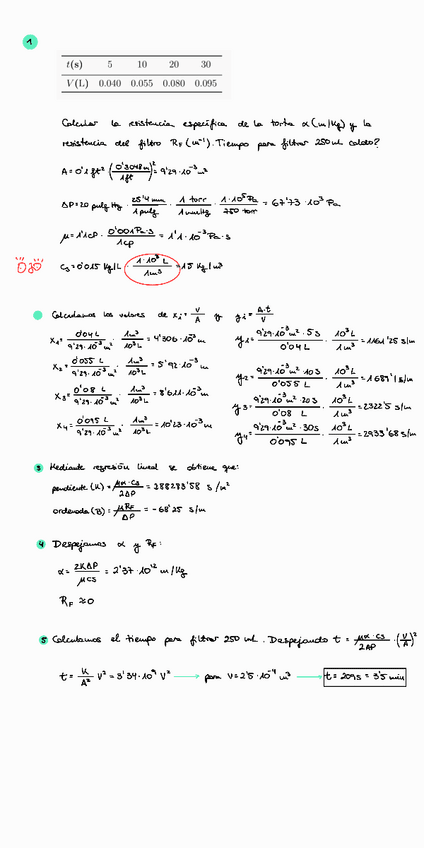 1
t(s) 5 10 20 30
V(L) 0.040 0.055 0.080 0.095
Calcular la resistencia específica de la torta α (m/kg) y la
resistencia del filtro RF (m⁻¹). Tiempo para filtrar 250 mL caldo?
A = 0'1 ft² (0'3048 m / 1 ft)² = 9'29·10⁻³ m²
ΔP = 20 pulg Hg · 25'4 mm / 1 pulg · 1 torr / 1 mmHg · 1·10⁵ Pa / 750 torr = 67'73·10³ Pa
μ = 1'1 cP · 0'001 Pa·s / 1 cP = 1'1·10⁻³ Pa·s
OJO Cs = 0'015 Kg/L · 1·10³ L / 1 m³ = 15 Kg/m³
Calculamos los valores de xi = V/A y yi = A·t/V
x1 = 0'04 L / 9'29·10⁻³ m² · 1 m³ / 10³ L = 4'306·10⁻³ m
y1 = 9'29·10⁻³ m² · 5 s / 0'04 L · 10³ L / 1 m³ = 1161'25 s/m
x2 = 0'055 L / 9'29·10⁻³ m² · 1 m³ / 10³ L = 5'92·10⁻³ m
y2 = 9'29·10⁻³ m² · 10 s / 0'055 L · 10³ L / 1 m³ = 1689'1 s/m
x3 = 0'08 L / 9'29·10⁻³ m² · 1 m³ / 10³ L = 8'611·10⁻³ m
y3 = 9'29·10⁻³ m² · 20 s / 0'08 L · 10³ L / 1 m³ = 2322'5 s/m
x4 = 0'095 L / 9'29·10⁻³ m² · 1 m³ / 10³ L = 10'23·10⁻³ m
y4 = 9'29·10⁻³ m² · 30 s / 0'095 L · 10³ L / 1 m³ = 2933'68 s/m
3 Mediante regresión lineal se obtiene que:
pendiente (K) = μα·Cs / 2ΔP = 288283'58 s/m²
ordenada (B) = μRF / ΔP = -68'25 s/m
4 Despejamos α y RF:
α = 2KΔP / μCs = 2'37·10¹² m/Kg
RF ≈ 0
5 Calculamos el tiempo para filtrar 250 mL. Despejando t = μα·Cs / 2ΔP · (V/A)²
t = K/A² V² = 3'34·10⁹ V² → para V = 2'5·10⁻⁴ m³ → t = 209 s = 3'5 min